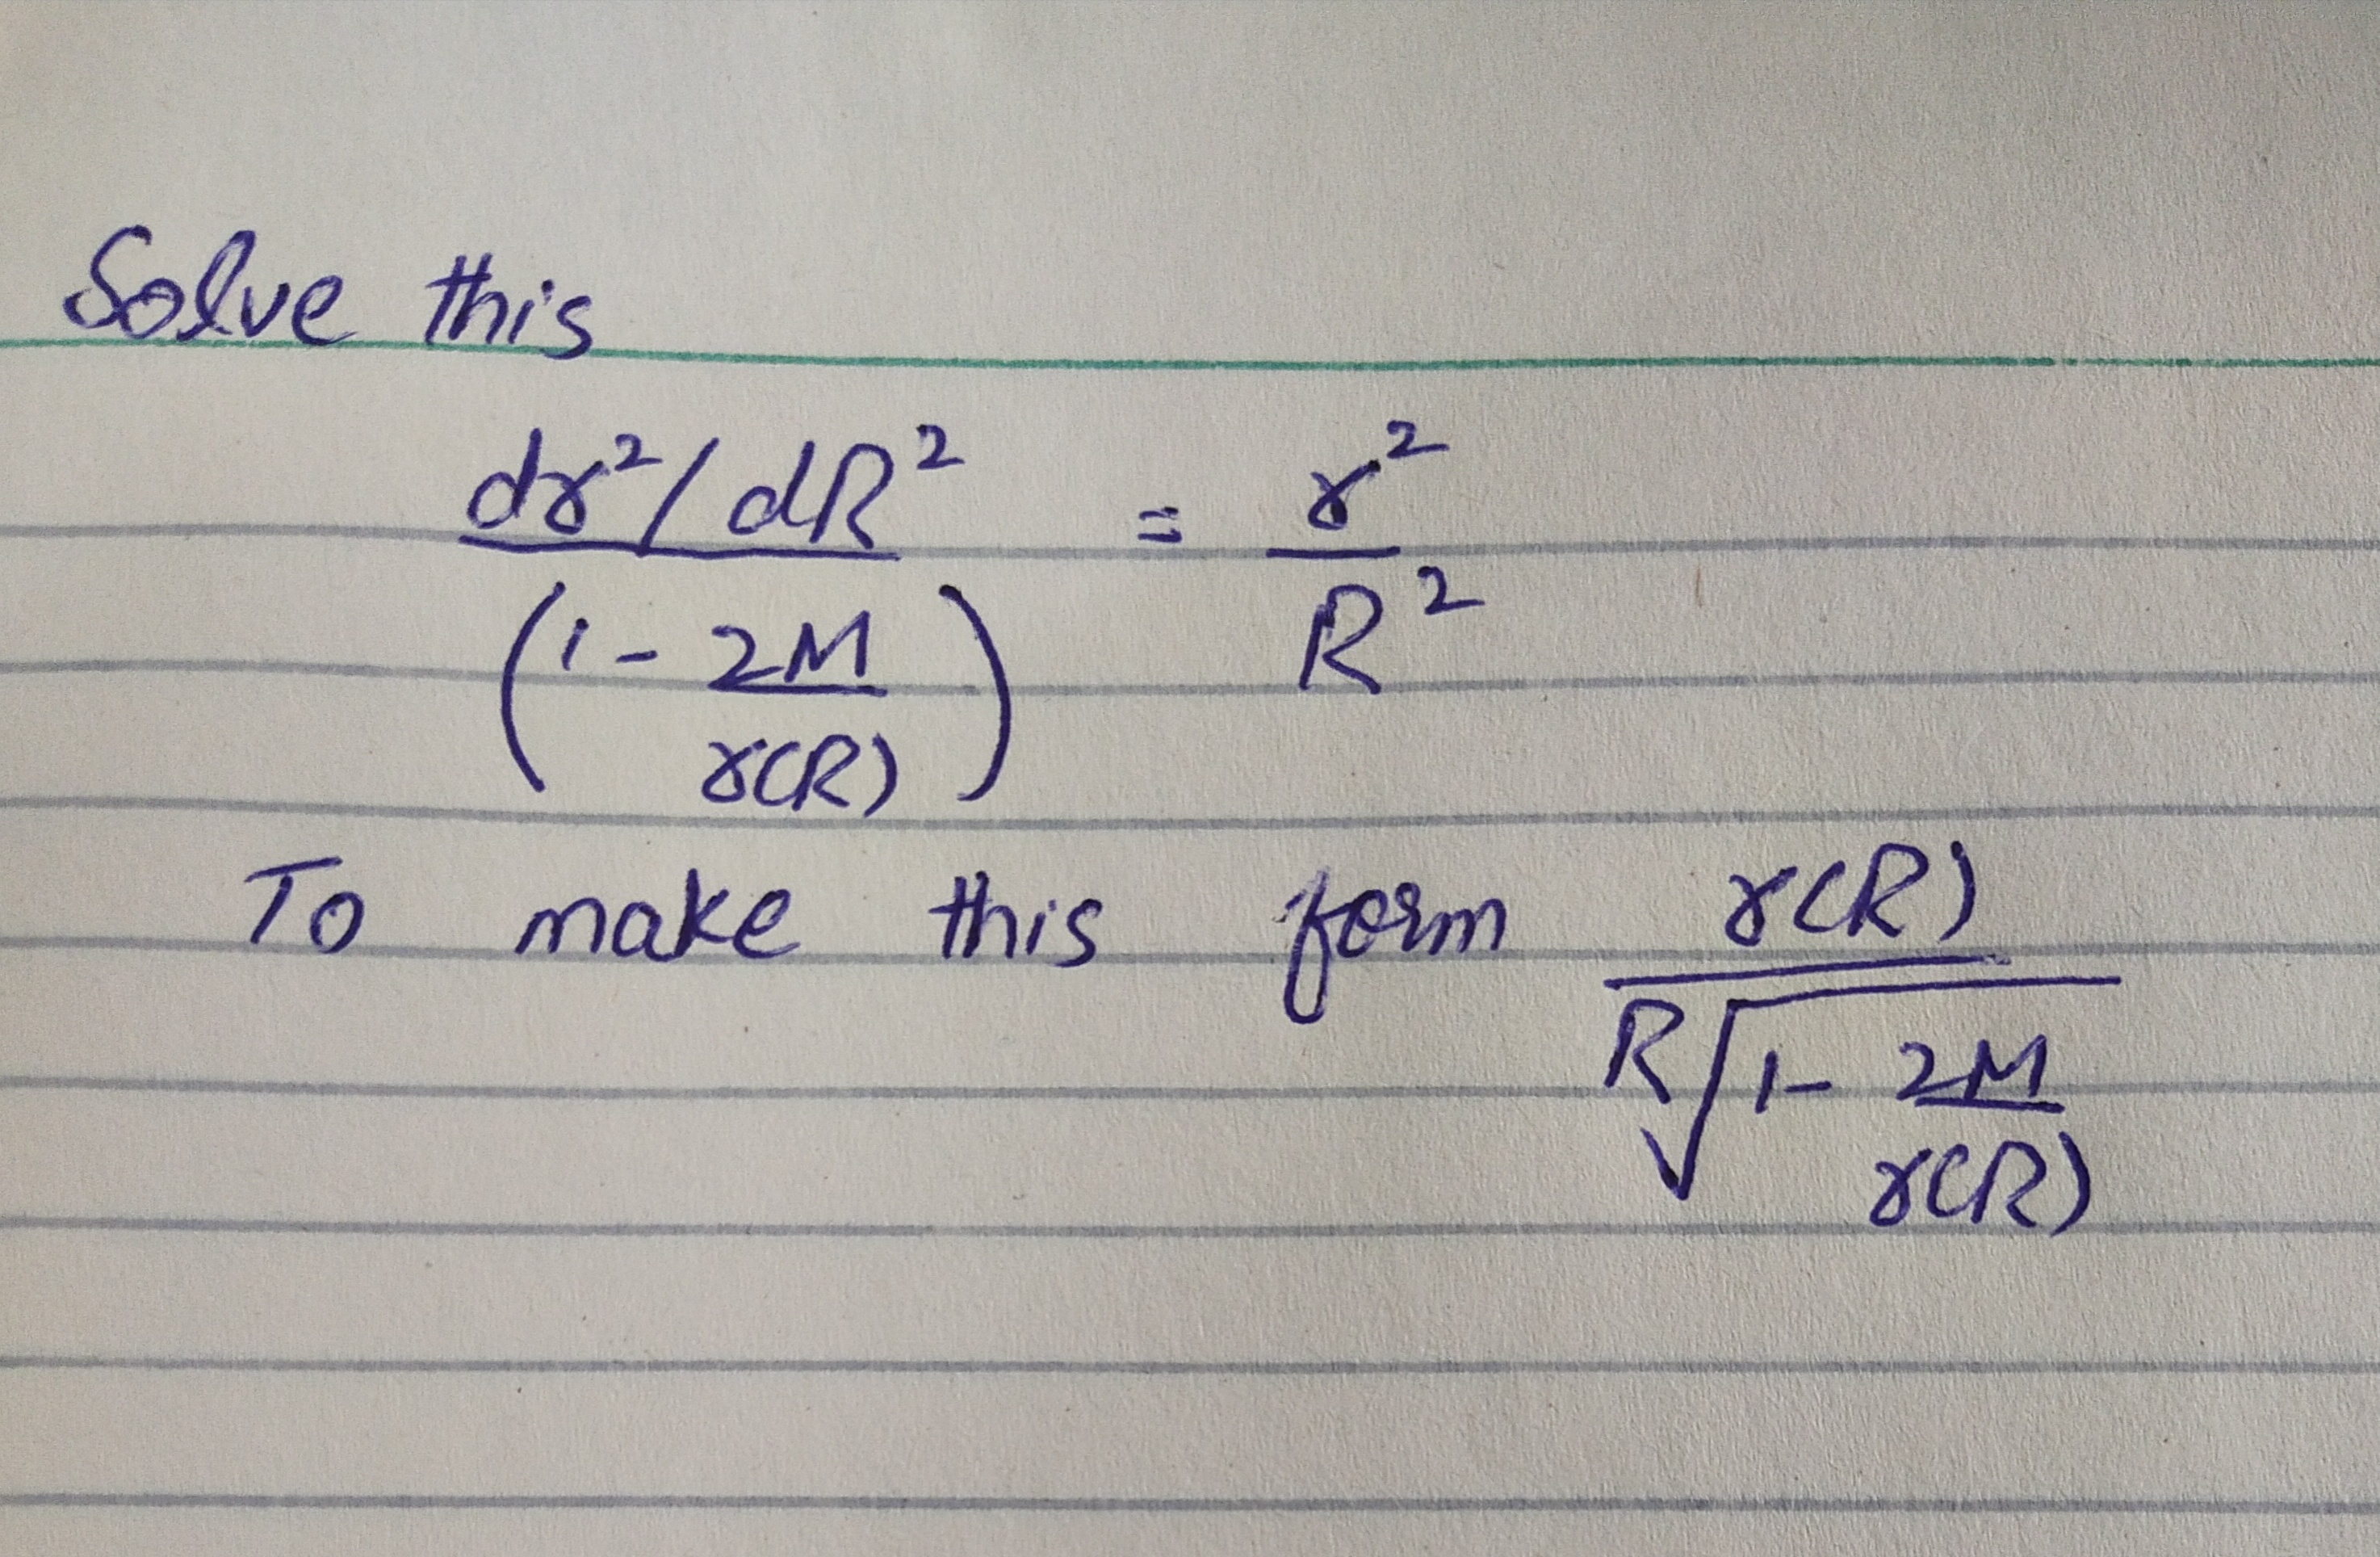 Solve this
dr²/dR² / (1 - 2M/r(R)) = r²/R²
To make this form r(R) / R√1 - 2M/r(R)